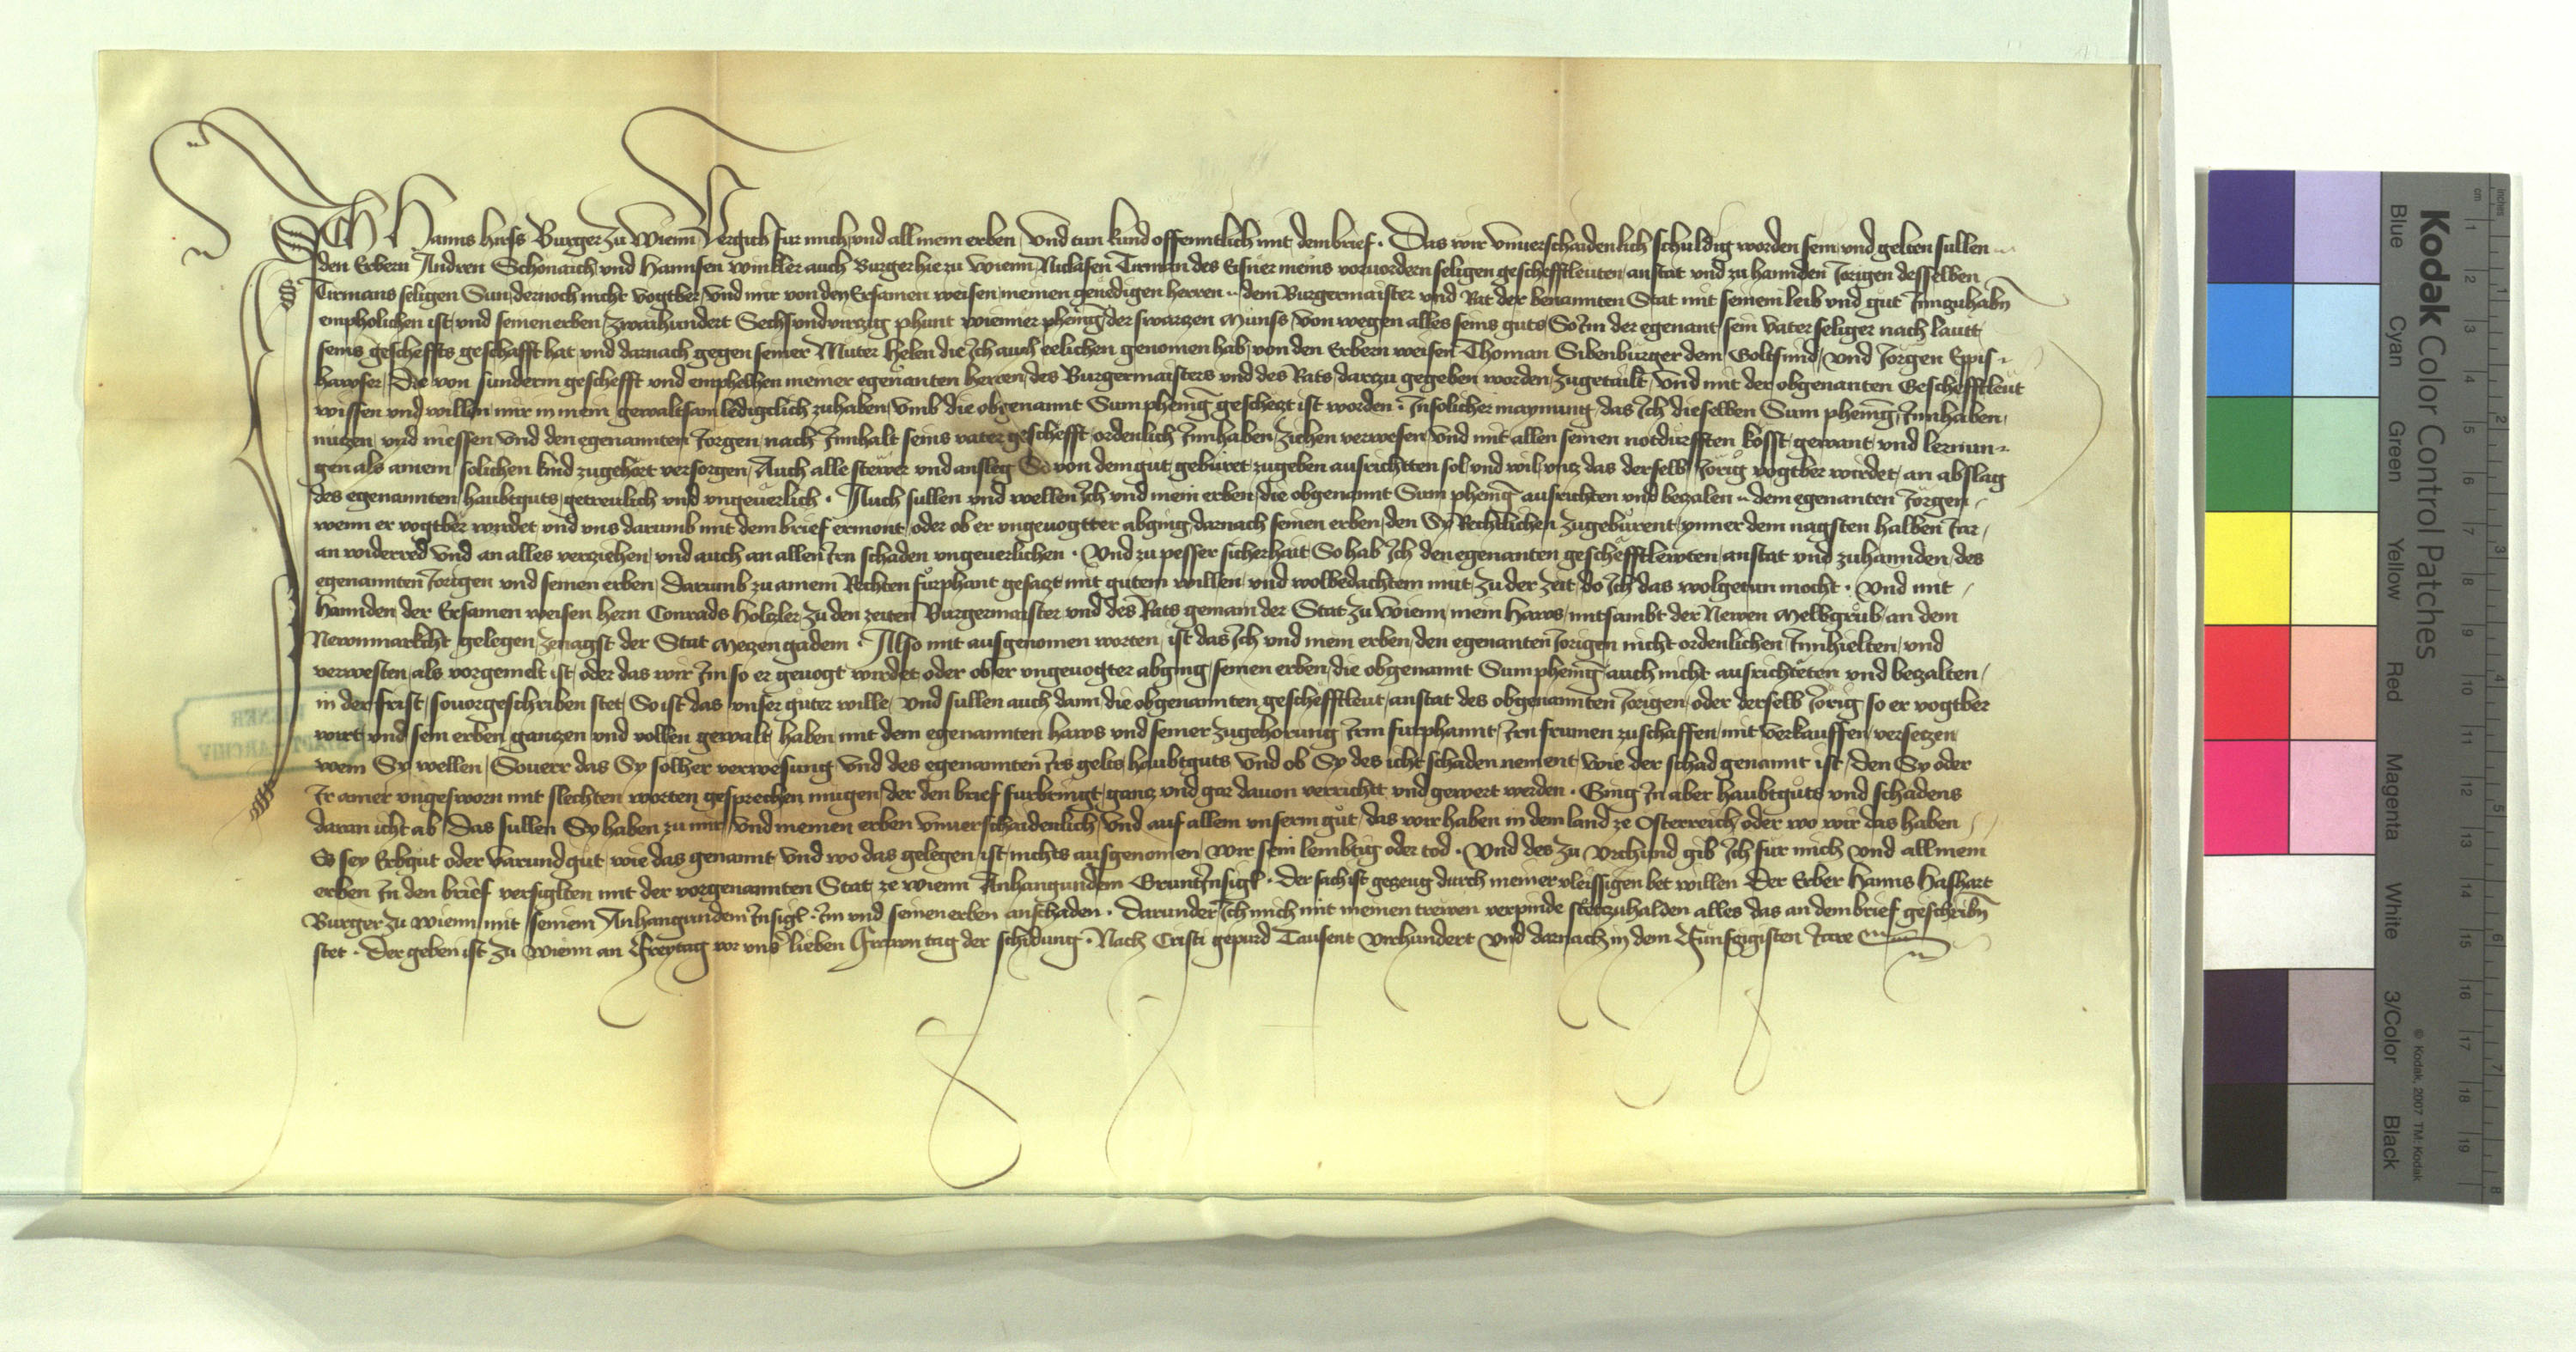 Ich Hanns Huss Burger zu Wienn Vergich fur mich und all mein erben / Und tun kund offenntlich mit dem brief · Das wir unverschaidenlich schuldig worden sein und gelten sullen
den Erbern Andren Schonaich und Hannsen Winkler auch Burger hie zu Wienn Niclasen Tirman des Eisner meins vorvordern seligen geschefftleuten anstat und zu hannden Jorigen desselben
Tirmans seligen Sun / der noch nicht vogtber / und mir von den Ersamen weisen meinen genedigen herren dem Burgermaister und Rat der benannten Stat mit seinem leib und gut Innzuhabn
empholichen ist / und seinen erben / zwaihundert Sechsundvirzig phunt wienner phenig der swarzen Munss / von wegen alles seins guts / So Im der egenant sein vater seliger nach lautt
seins gescheffts geschafft hat und darnach gegen seiner Muter Helen die Ich auch eelichen genomen hab / von den Erbern weisen Thoman Sibenburger dem Goltsmid / und Jorgen Epis
hawser / Die von sunderm gescheft und emphelhen meiner egenanten herren / des Burgermaisters und des Rats / darzu gegeben worden / zugetailt / und mit der obgenanten Geschefftleut
wissen und willen mir in mein gewaltsam ledigclich zuhaben / umb die obgenannt Sum phenig geschezt ist worden · In solicher maynung / das Ich dieselben Sum phenig / Innhaben /
nuczen / und niessen und den egenannten Jorgen / nach Innhalt seins vater geschefft / ordenlich Innhaben / ziehen verwesen / und mit allen seinen notdurfften kosst / gewant / und lernun
gen als ainem solichen kind zugehort versorgen / Auch alle stewer und ansleg So von dem gut geburet zugeben ausrichtten sol und wil / uncz das derselb Jorig vogtber wirdet / an abslag
des egenannten haubtguts getreulich und ungeverlich · Auch sullen und wellen Ich und mein erben / die obgenannt Sum phenig ausrichten und bezalen dem egenanten Jorgen
wenn er vogtber wirdet und uns darumb mit dem brief ermont / oder ob er ungevogtter abging / darnach seinen erben / den Sy Rechtlichen zugeburent / ynner dem nagsten halben Jar /
an widerred und an alles verziehen / und auch an allen Irn schaden ungeverlichen · Und zu pesser sicherhait So hab Ich den egenanten geschefftlewten / anstat und zuhannden / des
egenannten Jorigen und seinen erben / Darumb zu ainem Rechten furphant gesazt mit gutem willen / und wolbedachtem mut / zu der zeit / do Ich das wol getun mocht · Und mit /
hannden der Ersamen weisen hern Conrads Holczler zu den zeiten Burgermaister und des Rats gemain der Stat zu Wienn / mein Haws / mitsambt der Newen Melbgrub / an dem
Newnmarkcht gelegen / zenagst der Stat Meczen gadem · Also mit ausgenomen worten / ist das Ich und mein erben / den egenanten Jorigen nicht ordenlichen / Innhielten / und
verwesten / als vorgemelt ist / oder das wir Im so er gevogt wirdet / oder ob er ungevogtter abging / seinen erben / die obgenannt Sum phenig auch nicht ausrichteten und bezalten /
in der frist / so vorgeschriben stet / So ist das unser guter wille / und sullen auch dann die obgenannten geschefftleut / anstat des obgenannten Jorigen / oder derselb Jorig so er vogtber
wirt / und sein erben ganczen und vollen gewalt haben mit dem egenannten haws und seiner zugehorung Irm furphannt / Irn frumen zuschaffen / mit verkauffen / versetzen
wem Sy wellen / Soverr das Sy solher verwesung und des egenannten Irs gelts / haubtguts und ob Sy des icht schaden nement / wie der schad genannt ist / Den Sy oder
Ir ainer ungesworn mit slechten worten gesprechen mugen / der den brief furbringt / ganz und gar davon verricht und gewert werden · Ging In aber haubtguts und schadens
daran icht ab / Das sullen Sy haben zu mir / und meinen erben unverschaidenlich / Und auf allem unserm gut / das wir haben in dem land ze Osterreich / oder wo wir das haben
Es sey Erbgut oder varund gut / wie das genannt / und wo das gelegen ist / nichts ausgenomen / wir sein lembtig oder tod · Und des zu Urchund gib Ich fur mich und all mein
erben In den brief versiglten mit der vorgenannten Stat ze Wienn Anhangundem GruntInsigl · Der sach ist gezeug durch meiner vleissigen bet willen Der Erber Hanns Hashart
Burger zu Wienn mit seinem Anhangundem Insigl · Im und seinen erben anschaden · Darunder Ich mich mit meinen trewen verpinde stetzuhalden alles das an dem brief geschribn
stet · Der geben ist zu Wienn an Freytag vor uns lieben Frawn tag der schidung · Nach Cristi gepurd Tausent virhundert und darnach in dem Funfczigisten Jare
Kodak Color Control Patches
Blue Cyan Green Yellow Red Magenta White 3/Color Black
© Kodak, 2007 TM: Kodak
cm 1 2 3 4 5 6 7 8 9 10 11 12 13 14 15 16 17 18 19
inches 1 2 3 4 5 6 7 8